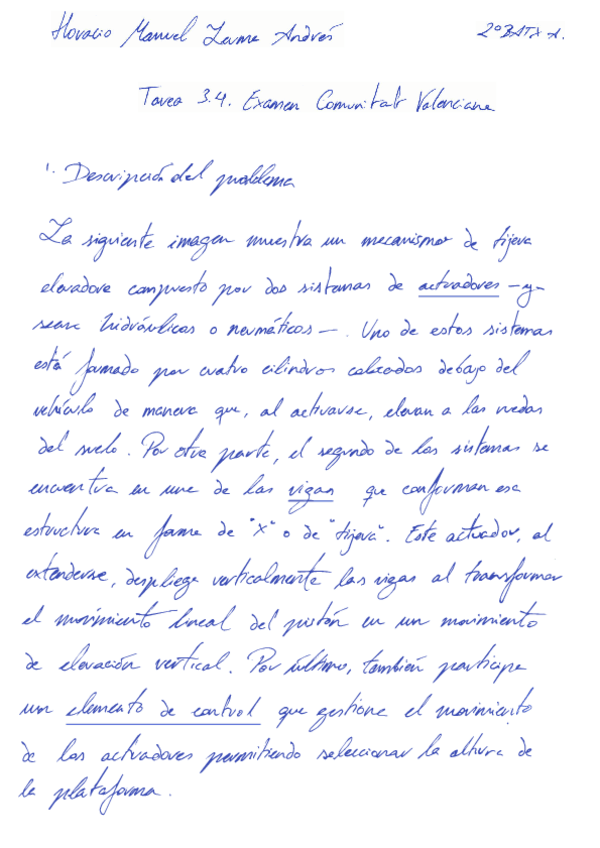 Horacio Manuel Zama Andrés
2º BATX A.
Tarea 3.4. Examen Comunitat Valenciana
1. Descripción del problema
La siguiente imagen muestra un mecanismo de tijera
elevadora compuesto por dos sistemas de actuadores —y-
sean hidráulicos o neumáticos—. Uno de estos sistemas
está formado por cuatro cilindros colocados debajo del
vehículo de manera que, al activarse, elevan a las ruedas
del suelo. Por otra parte, el segundo de los sistemas se
encuentra en una de las vigas que conforman esa
estructura en forma de "X" o de "tijera". Este actuador, al
extenderse, despliega verticalmente las vigas al transformar
el movimiento lineal del pistón en un movimiento
de elevación vertical. Por último, también participa
un elemento de control que gestiona el movimiento
de los actuadores permitiendo seleccionar la altura de
la plataforma.